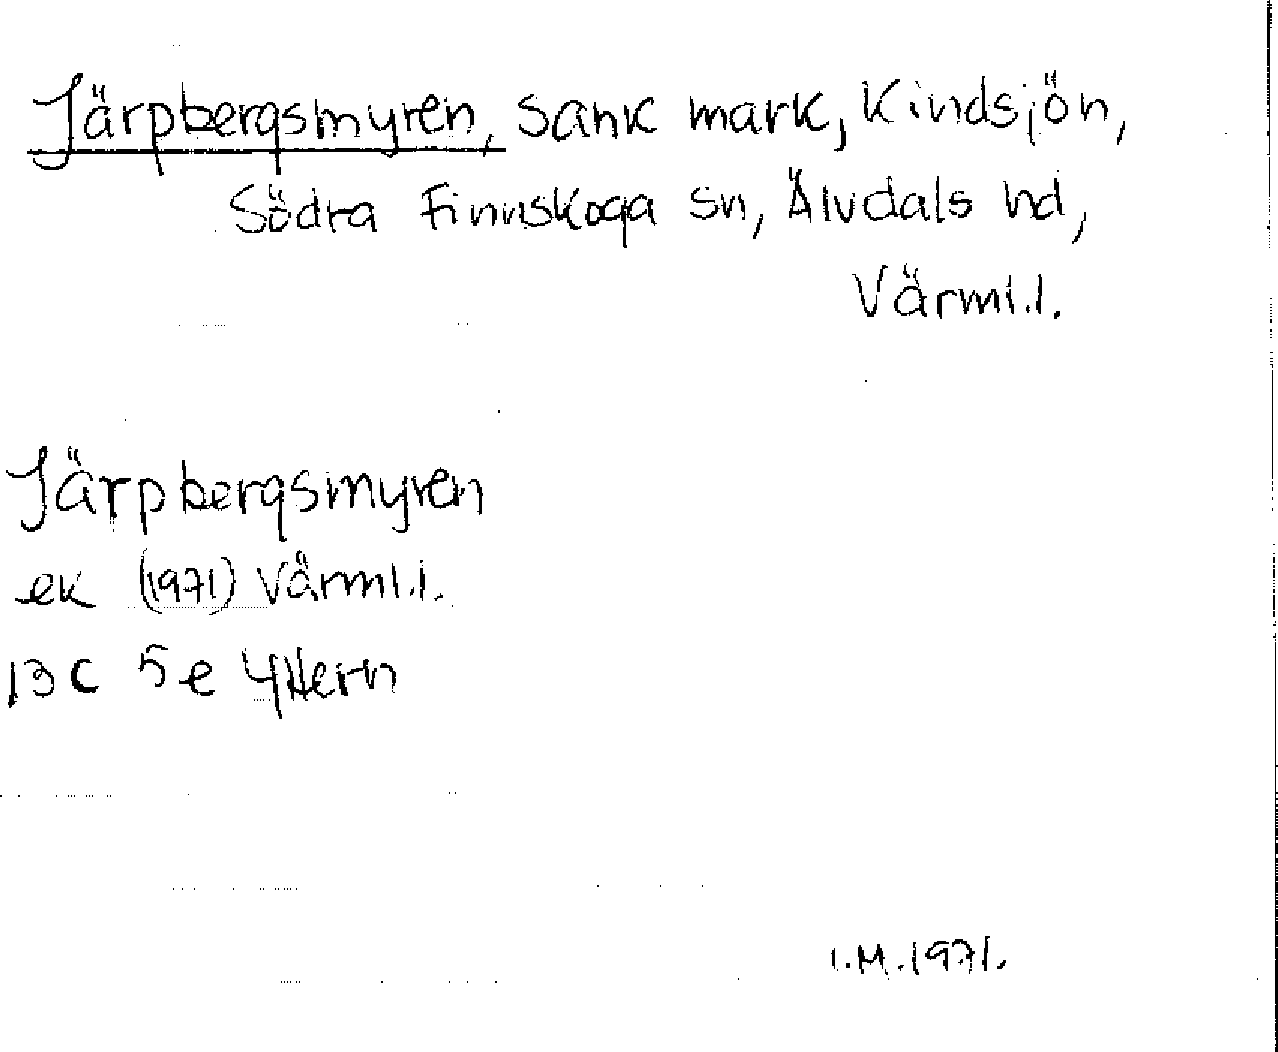 Järpbergsmyren, Sank mark, Kindsjön,
Södra Finnskoga sn, Älvdals hd,
Värml.l.
Järpbergsmyren
ek (1971) Värml.l.
13 C 5 e Y Hern
I.M. 1971.